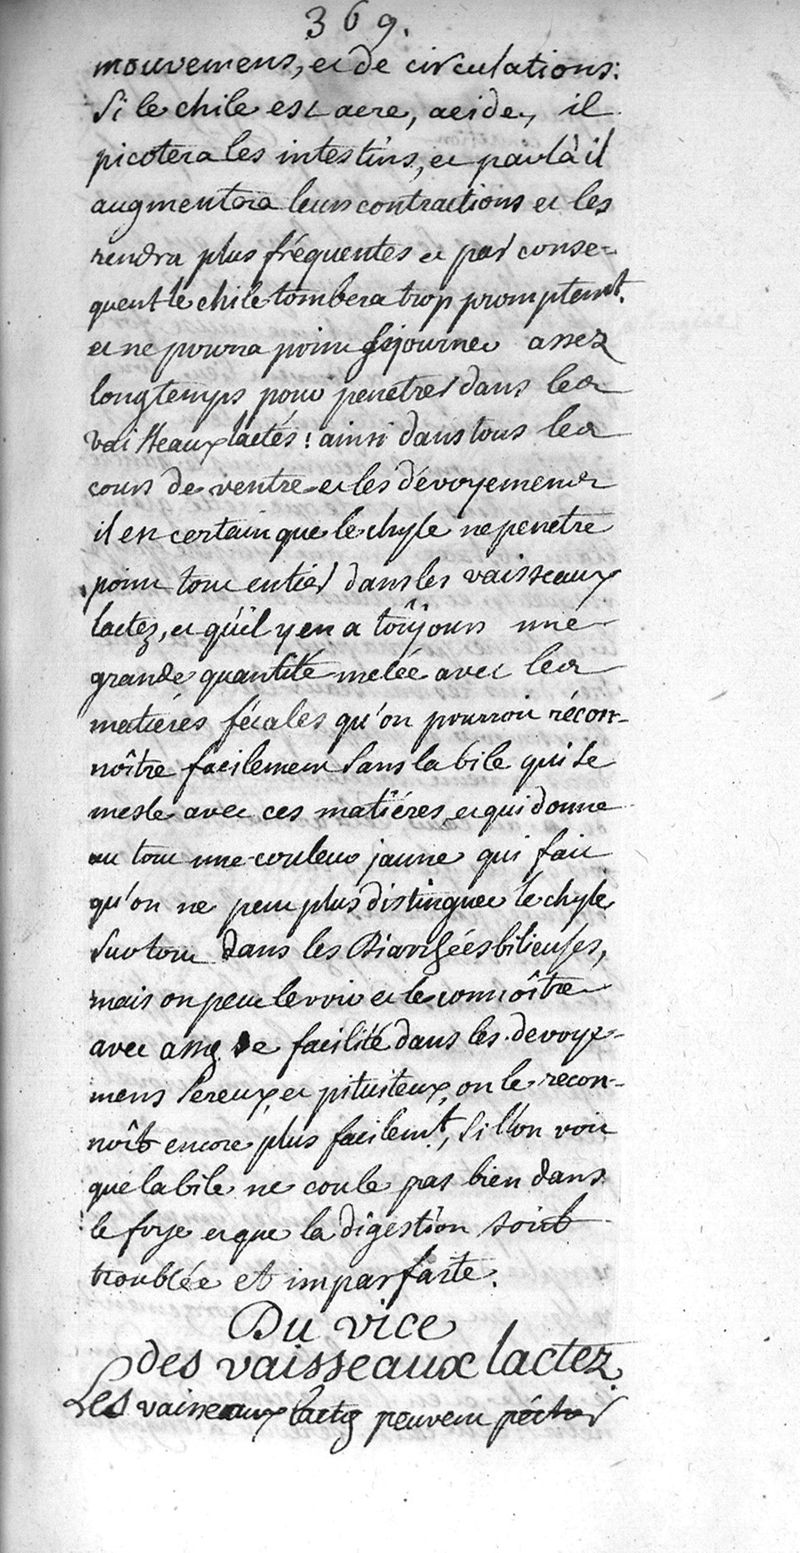 369.
mouvemens, et de circulations:
Si le chile est acre, acide, il
picotera les intestins, et par là il
augmentera leurs contractions et les
rendra plus fréquentes et par conse-
quent le chile tombera trop promptemt.
et ne pourra point séjourner assez
longtemps pour penetrer dans les
vaisseaux lactés: ainsi dans tous les
cours de ventre et les dévoyemens
il est certain que le chyle ne penetre
point tout entier dans les vaisseaux
lactez, et qu'il y en a toûjours une
grande quantité melée avec les
matiéres fécales qu'on pourroit récon-
noître facilement sans la bile qui se
mesle avec ces matiéres, et qui donne
au tout une couleur jaune qui fait
qu'on ne peut plus distinguer le chyle
Surtout dans les Diarrhées bilieuses,
mais on peut le voir et le connoître
avec assez de facilité dans les devoye-
mens sereux et pituiteux, on le recon-
noit encore plus facilemt, si l'on voit
que la bile ne coule pas bien dans
le foye et que la digestion soit
troublée et imparfaite.
Du vice
des vaisseaux lactez
Les vaisseaux lactez peuvent pécher